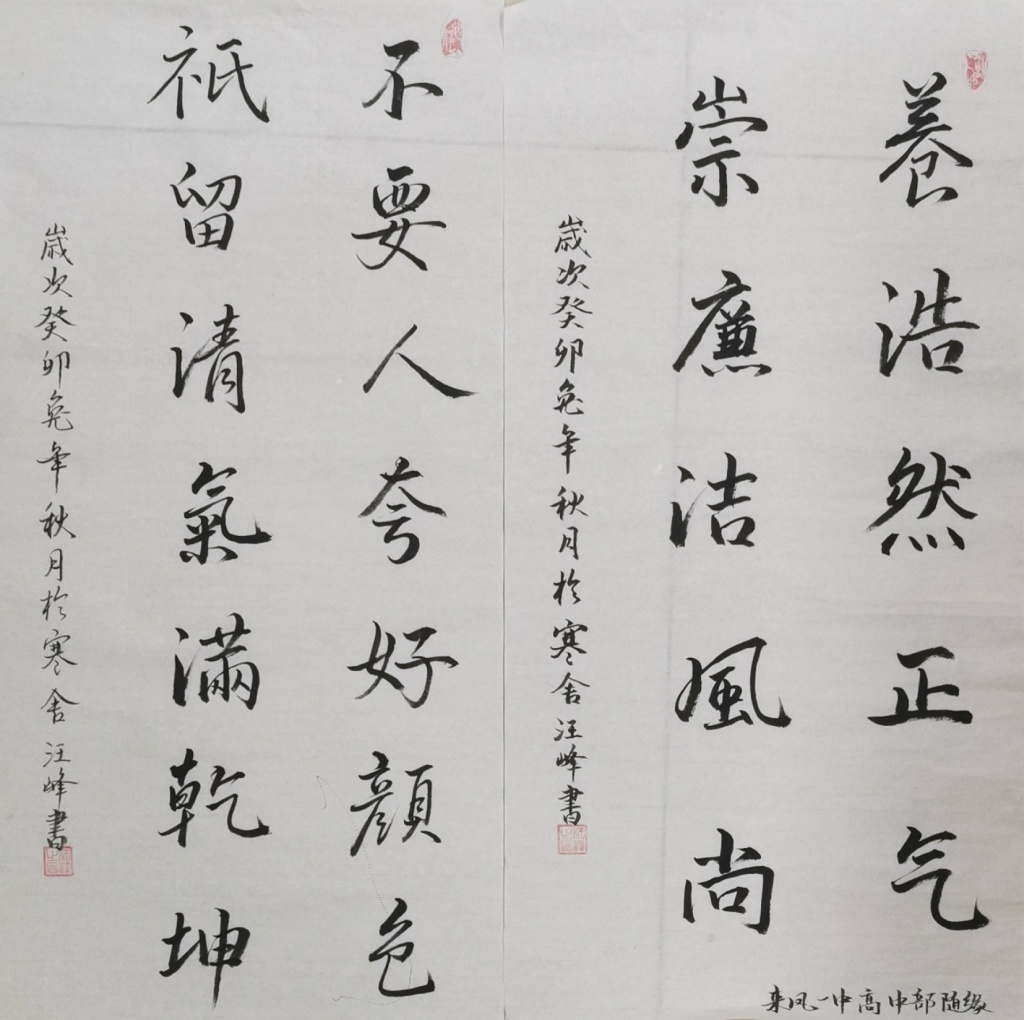 養浩然正气
崇廉洁風尚
歲次癸卯兔年秋月於寒舍汪峰書
不要人夸好顔色
祇留清氣滿乾坤
歲次癸卯兔年秋月於寒舍汪峰書
来凤一中高中部随缘